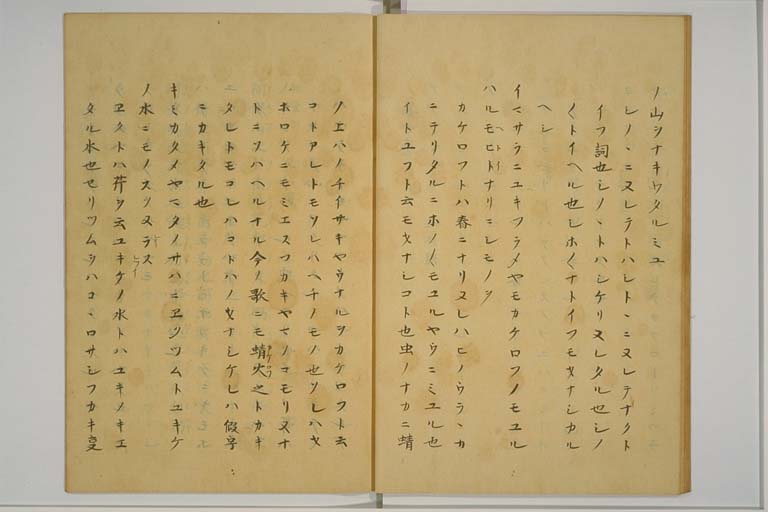 ノ山シナキワタルミユ
シノヽニヌレテトハシトヽニヌレテナクト
イフ詞也シノヽトハシケリヌレタル也シノ
〱トイヘル也シホ〱ナトイフモ𛄁ナシカル
ヘシ
イマサラニユキフラメヤモカケロフノモユル
ハルヘトイモヒトナリニシモノヲ
カケロフトハ春ニナリヌレハヒノウラヽカ
ニテリタルニホノ〱モユルヤウニミユル也
イトユフト云モヲナシコト也虫ノナカニ蜻
ノエハノチイサキヤウナルヲカケロフト云
コトアレトモソレハヘチノモノ也ソレハヲ
ホロケニモミエスフカキヤマノコモリヌナ
トニソハヘルナル今ノ歌ニモ蜻火之トカキ
タレトモコレハコトハノヲナシケレハ假字
ニカキタル也
キミカタメヤマタノサハニヱツツムトユキケ
ノ水ニモノスソヌラス
ヱクトハ芹ヲ云ユキケノ水トハユキノキエ
タル水也セリツムシハコヽロサシフカキ㕝